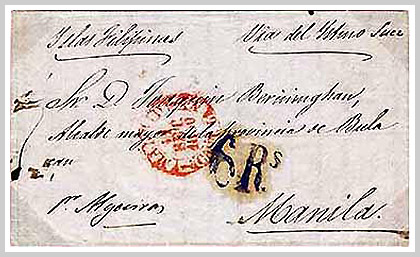 Islas Filipinas
Via del Istmo Suez
Sr. D. Joaquin Beruminghan,
Alcalde mayor de la provincia de Bula
can
6 Rs
pr. Algeciras
Manila.